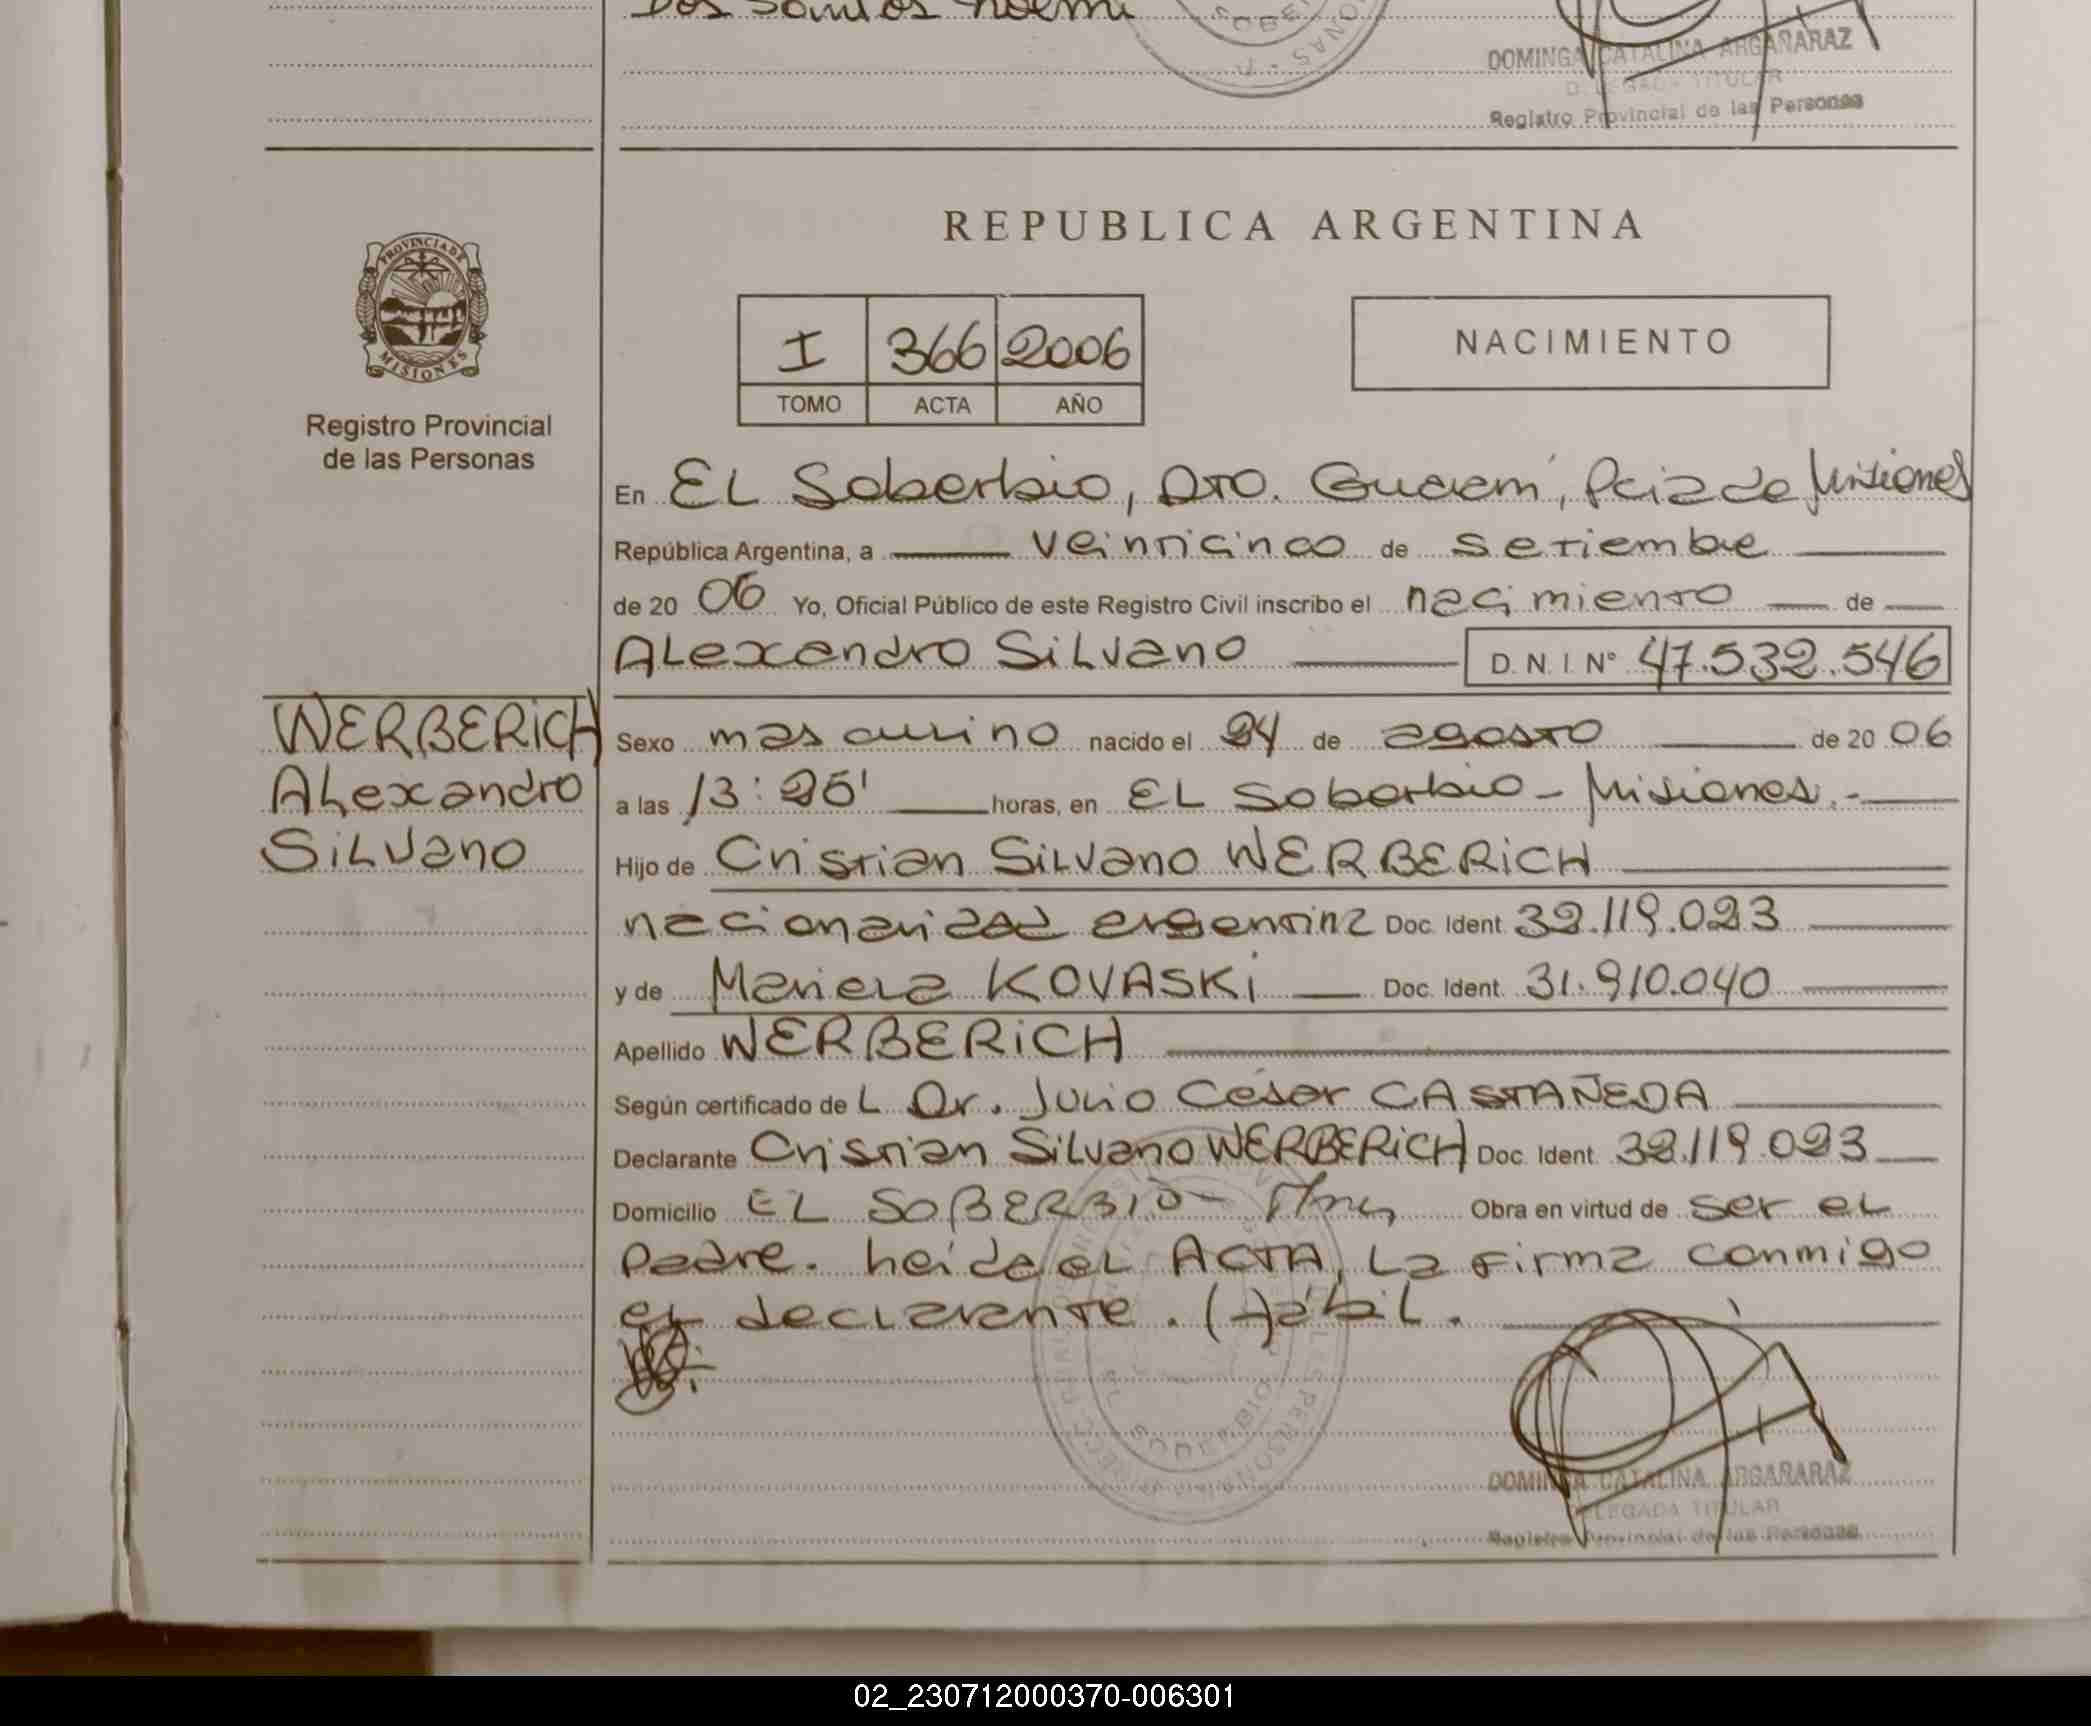 Dos Santos Noemi
SOBE
DOMINGA CATALINA ARGAÑARAZ
DELEGADA TITULAR
Registro Provincial de las Personas
PROVINCIA DE
MISIONES
Registro Provincial
de las Personas
REPUBLICA ARGENTINA
I 366 2006
TOMO ACTA AÑO
NACIMIENTO
En EL Soberbio, Dto. Guaraní, Pcia de Misiones
República Argentina, a veinticinco de setiembre
de 20 06 Yo, Oficial Público de este Registro Civil inscribo el nacimiento de
ALexandro SiLvano D. N. I. N° 47.532.546
WERBERiCH
ALexandro
SiLvano
Sexo masculino nacido el 24 de agosto de 20 06
a las 13:25' horas, en EL Soberbio - Misiones.-
Hijo de Cristian SiLvano WERBERiCH
nacionalidad argentina Doc. Ident. 32.119.023
y de Mariela KOVASKi Doc. Ident. 31.910.040
Apellido WERBERiCH
Según certificado de L Dr. Julio César CASTAÑEDA
Declarante Cristian SiLvano WERBERiCH Doc. Ident. 32.119.023
Domicilio EL SOBERBIO - Mnes Obra en virtud de ser el
Padre. heida el ACTA, La firma conmigo
el declarante. (H)ábil.
EL SOBERBIO
DOMINGA CATALINA ARGAÑARAZ
DELEGADA TITULAR
Registro Provincial de las Personas
02_230712000370-006301